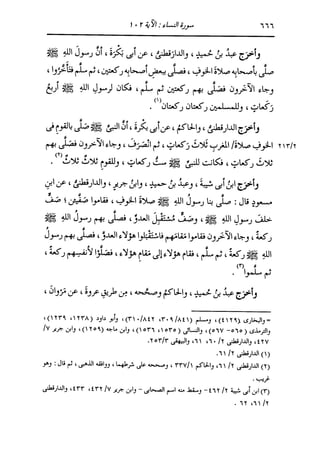 ٦٦٦ سورة النساء : الآية ١٠٢
وأخرَج عبدُ بنُ حُميدٍ ، والدارقطنىُّ ، عن أبى بَكْرَةَ ، أن رسولَ اللهِ ﷺ
صلَّى بأصحابِه صلاةَ الخوفِ ، فصلَّى ببعضِ أصحابِه ركعتين ، ثم سلَّم فتأخَّروا ،
وجاء الآخرون فصلَّى بهم ركعتين ثم سلَّم ، فكان لرسولِ اللهِ ﷺ أربعُ
ركعاتٍ ، وللمسلمين ركعتان ركعتان(١) .
وأخرَج الدارقطنىُّ ، والحاكمُ ، عن أبى بكْرةَ ، أن النبىَّ ﷺ صلَّى بالقومِ فى
٢١٣/٢ الخوفِ صلاةَ/ المغربِ ثلاثَ ركعاتٍ ، ثم انْصَرَف ، وجاء الآخرون فصلَّى بهم
ثلاثَ ركعاتٍ ، فكانت للنبىِّ ﷺ ستُّ ركعاتٍ ، وللقومِ ثلاثٌ ثلاثٌ(٢) .
وأخرَج ابنُ أبى شيبةَ ، وعبدُ بنُ حميدٍ ، وابنُ جريرٍ ، والدارقطنىُّ ، عن ابنِ
مسعودٍ قال : صلَّى بنا رسولُ اللهِ ﷺ صلاةَ الخوفِ ، فقاموا صفَّين ؛ صفٌّ
خلفَ رسولِ اللهِ ﷺ ، وصفٌّ مُسْتَقْبِلَ العدوِّ ، فصلَّى بهم رسولُ اللهِ ﷺ
ركعةً ، وجاء الآخرون فقاموا مَقامَهم فاستقْبَلوا هؤلاء العدوَّ ، فصلَّى بهم رسولُ
اللهِ ﷺ ركعةً ، ثم سلَّم ، فقام هؤلاء إلى مَقامِ هؤلاء ، فصلَّوْا لأنفسِهم ركعةً ،
ثم سلَّموا(٣) .
وأخرَج عبدُ بنُ حُميدٍ ، والحاكمُ وصحَّحه ، من طريقِ عروةَ ، عن مَرْوانَ ،
= والبخارى (٤١٢٩) ، ومسلم (٣٠٩/٨٤١ ، ٣١٠/٨٤٢) ، وأبو داود (١٢٣٨ ، ١٢٣٩) ،
والترمذى (٥٦٥ - ٥٦٧) ، والنسائى (١٥٣٥ ، ١٥٣٦) ، وابن ماجه (١٢٥٩) ، وابن جرير ٧/
٤٢٧ ، والدارقطنى ٢/ ٦٠ ، ٦١ ، والبيهقى ٢٥٣/٣.
(١) الدارقطنى ٢/ ٦١ .
(٢) الدارقطنى ٢/ ٦١ ، والحاكم ٣٣٧/١ ، وصححه على شرطهما ، ووافقه الذهبى ، ثم قال : وهو
غريب .
(٣) ابن أبى شيبة ٢/ ٤٦٢ - وسقط منه اسم الصحابى - وابن جرير ٧/ ٤٣٢ ، ٤٣٣ ، والدارقطنى
٢/ ٦١ ، ٦٢ .